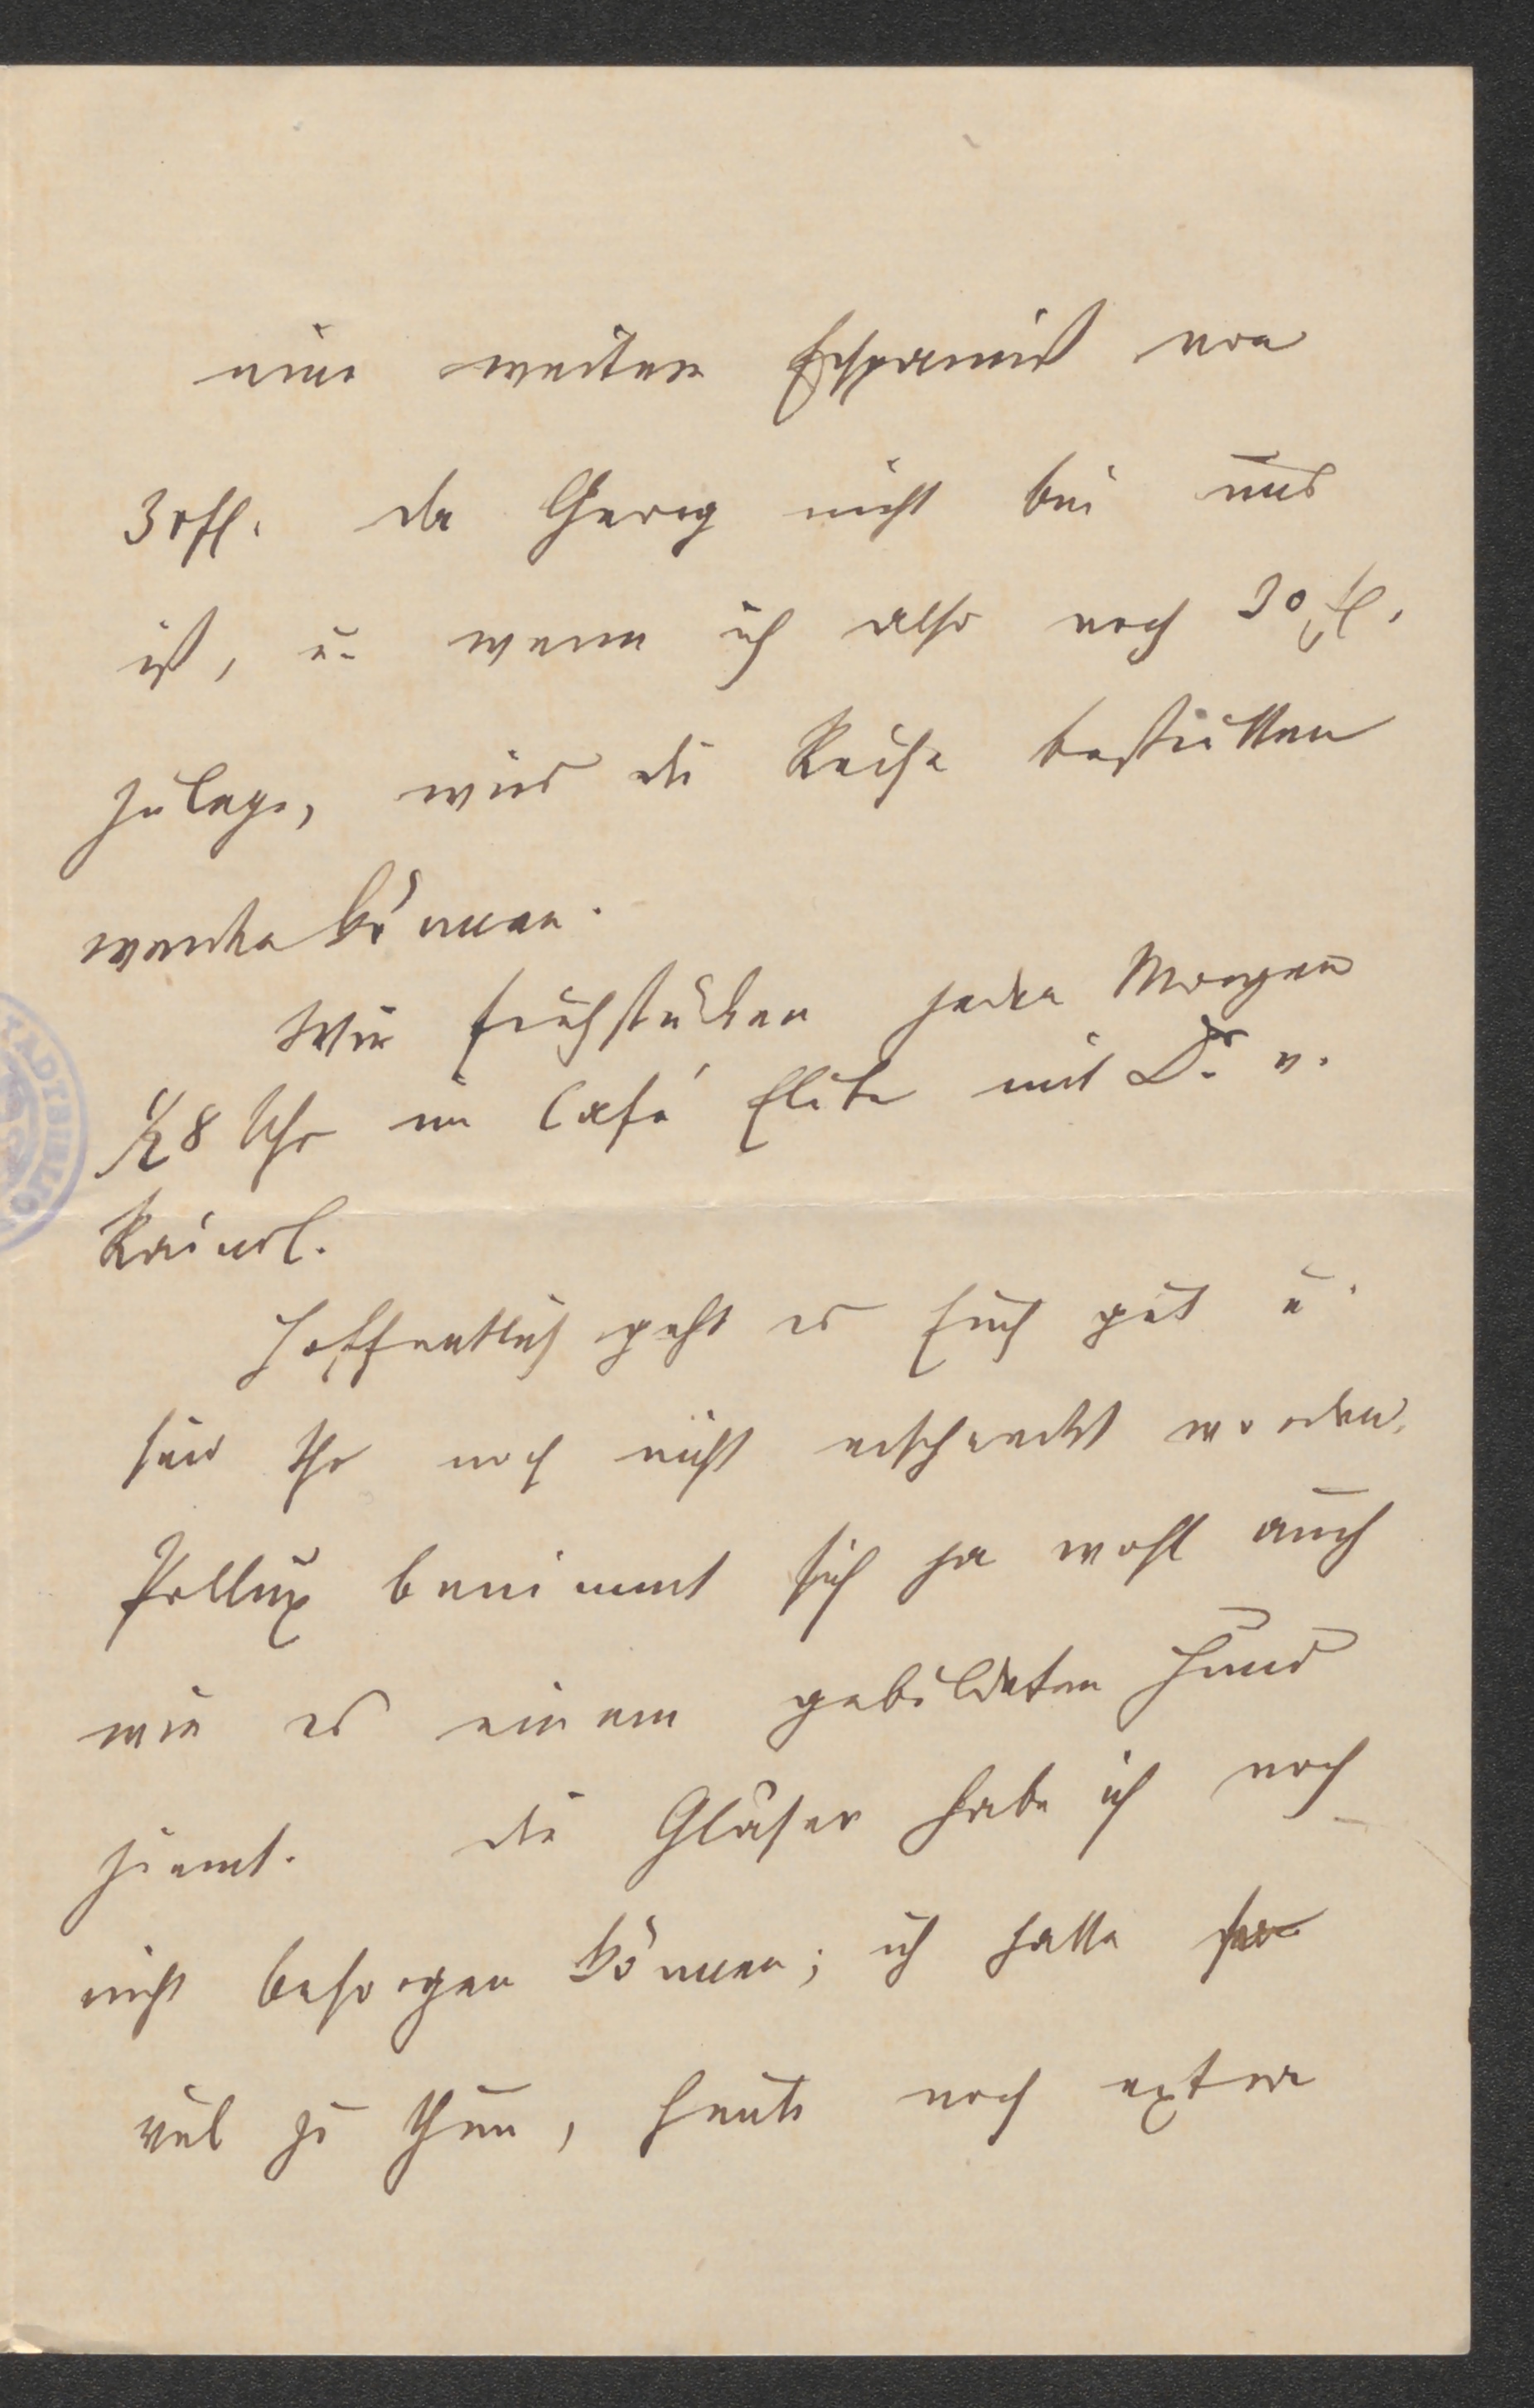 eine weitere Ersparniß von
30fl. da Georg nicht bei uns
ist, u. wenn ich also noch 30 fl.
zulege, wird die Reise bestritten
werden können.
Wir frühstücken jeden Morgen
1/2 8 Uhr im Café Elite mit Dr. v.
Raindl.
Hoffentlich geht es Euch gut u.
seid Ihr noch nicht erschreckt worden.
Pollux benimmt sich ja wohl auch
wie es einem gebildeten Hund
ziemt. Die Gläser habe ich noch
nicht besorgen können; ich hatte
viel zu thun, heute noch extra